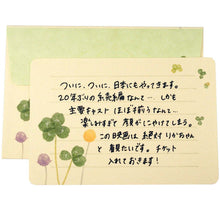 ついに、ついに、日本にもやってきます。
20年ぶりの続編なんて…。しかも
主要キャスト ほぼ揃うなんて…
楽しみすぎて 顔がにやけてしまう。
この映画は 絶対 りかちゃん
と 観たいです。チケット
入れておきます！